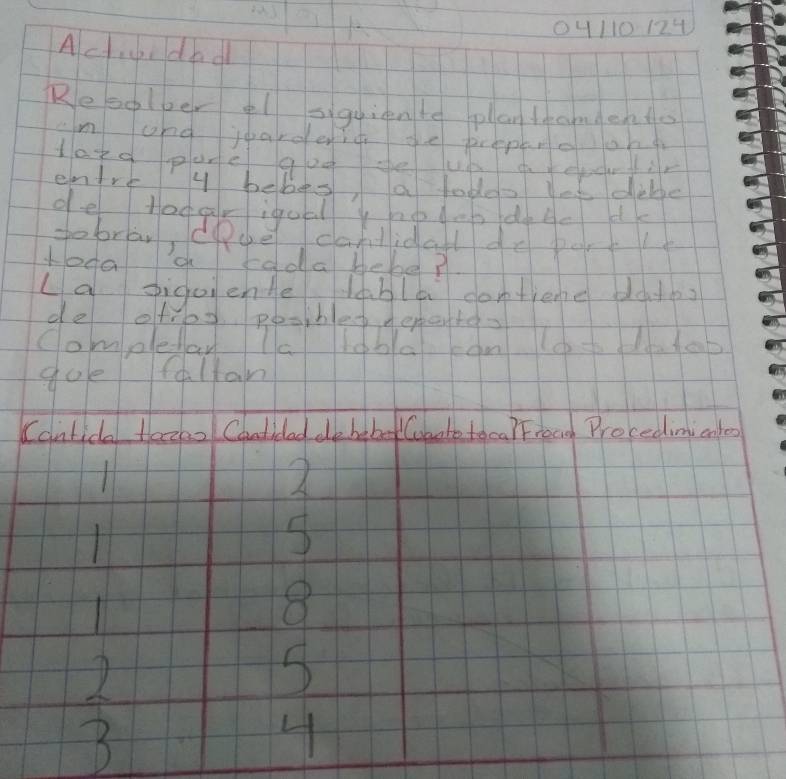 04/10/24
Actividad
Resolver el siguiente planteamiento
en una guarderia se preparo una
taza pure que se va a repartir
entre 4 bebes, a todos les debe
de tocar igual y no les debe de
sobrar, ¿Que cantidad de pure le
toca a cada bebe?
La siguiente tabla contiene datos
de otros posibles repartos
Completar la tabla con los datos
que faltan
Cantida tazas Cantidad de bebes ¿Cuanto toca? Procedimientos
1 2
1 5
1 8
2 5
3 4